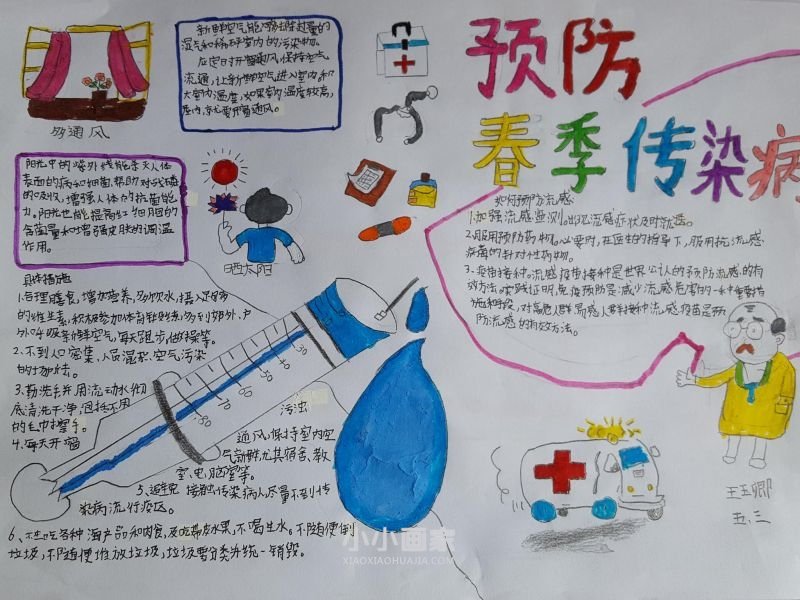 预防
春季传染病
新鲜空气能够排除过量的
湿气和稀释室内的污染物。
应定时开窗通风,保持空气
流通,让新鲜空气进入室内和
大室内湿度,如果室内湿度较高,
室内,就尤要开窗通风。
多通风
阳光中的紫外线能杀灭人体
表面的病和细菌,帮助对钙磷
的吸收,增强人体的抗菌能
力。阳光也能提高红细胞的
含菌量和增强皮肤的调温
作用。
晒太阳
具体措施
1.合理膳食,增加营养,多饮水,摄入足够
的维生素,积极参加体育锻炼,多到郊外,户
外呼吸新鲜空气,每天跑步,做操等。
2.不到人口密集,人员混杂,空气污染
的地方去。
3.勤洗手并用流动水彻
底清洗干净,包括不用
的毛巾擦手。
4.每天开窗
污浊
通风,保持室内空
气新鲜尤其宿舍、教
室、电脑室等。
5.避免接触传染病人,尽量不到传
染病流行疫区。
6、不生吃各种海产品和肉食,及吃带皮水果,不喝生水。不随便倒
垃圾,不随便堆放垃圾,垃圾要分类并统一销毁。
如何预防流感:
1.加强流感监测。出现流感症状及时就医。
2.服用预防药物。必要时,在医生的指导下,服用抗流感
病毒的针对性药物。
3.疫苗接种。流感疫苗接种是世界公认的预防流感的有
效方法。实践证明,免疫预防是减少流感危害的一种重要措
施和手段,对高危人群易感人群接种流感疫苗是预
防流感的有效方法。
80
70
60
50
40
30
王玉卿
五.三
小小画家
XIAOXIAOHUAJIA.COM